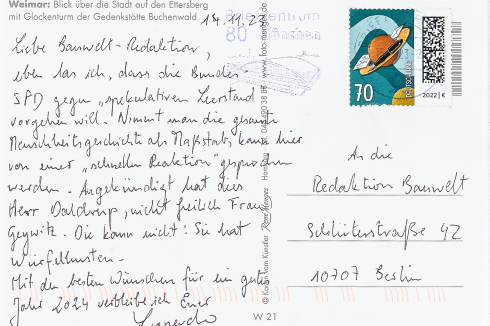 Weimar: Blick über die Stadt auf den Ettersberg
mit Glockenturm der Gedenkstätte Buchenwald
Liebe Bauwelt-Redaktion,
eben las ich, dass die Bundes-
SPD gegen „spekulativen Leerstand
vorgehen will. Nimmt man die gesamte
Menschheitsgeschichte als Maßstab, kann hier
von einer „schnellen Reaktion" gesprochen
werden. Angekündigt hat dies
Herr Daldrup, nicht freilich Frau
Geywitz. Die kann nicht: Sie hat
Würfelhusten.
Mit den besten Wünschen für ein gutes
Jahr 2024 verbleibe ich Euer
Briefzentrum
80
70
2022 | €
W 21
An die
Redaktion Bauwelt
Schlüterstraße 42
10707 Berlin